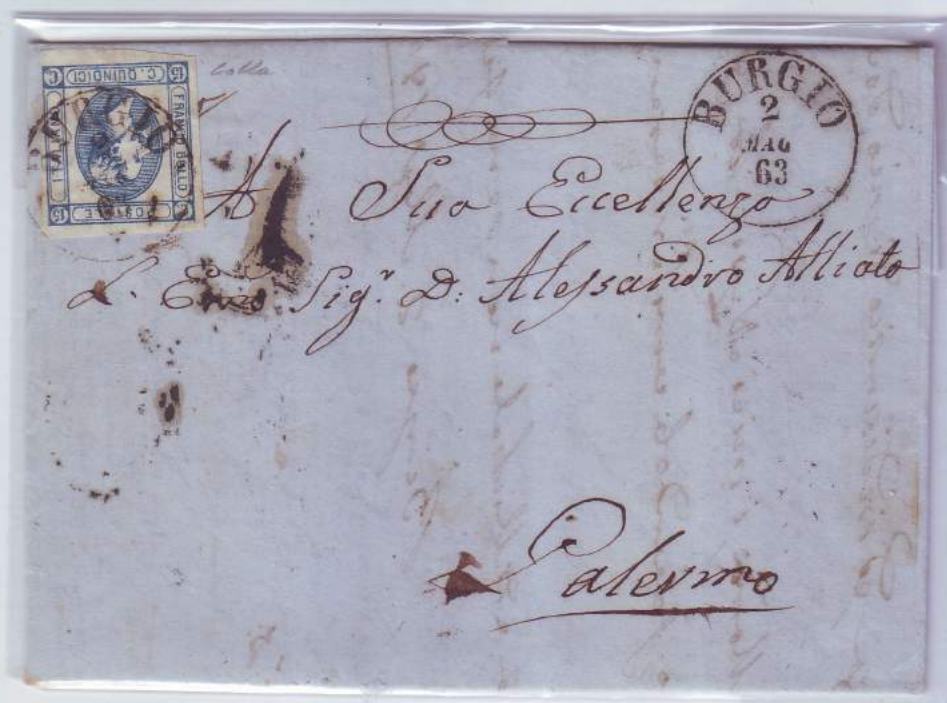 C. QUINDICI
FRANCO BOLLO
POSTALE
ITALIANO
15
15
BURGIO
2
MAG
63
A Sua Eccellenza
L. Sigr. D: Alessandro Alliata
Palermo